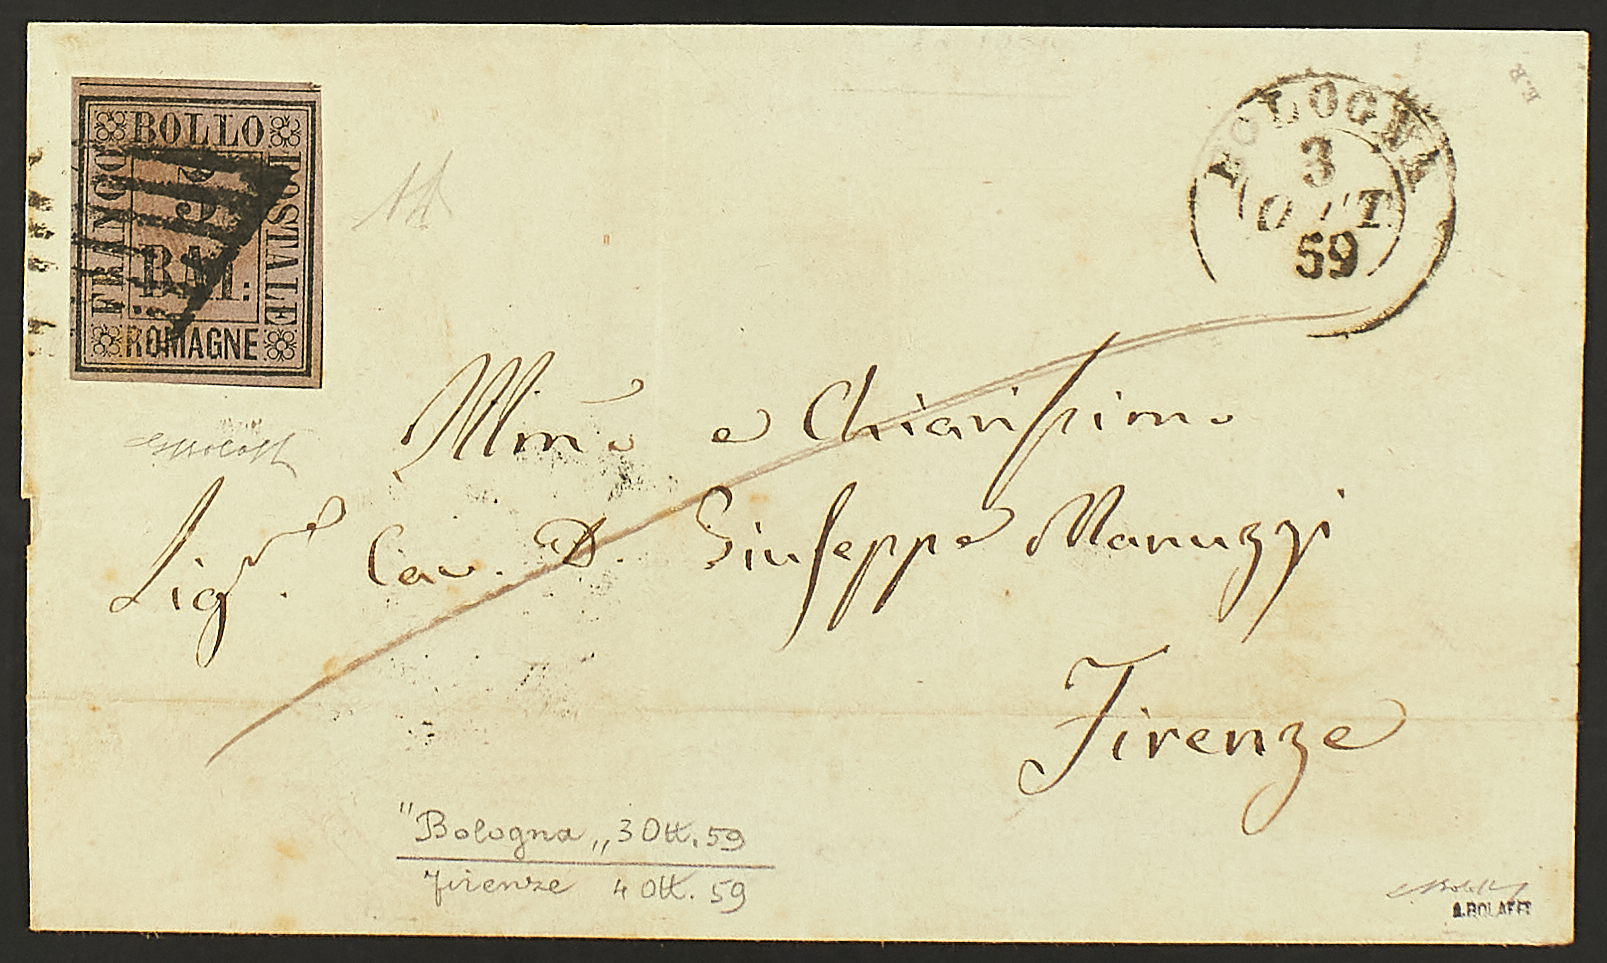 BOLLO
FRANCO
POSTALE
BAI:
ROMAGNE
BOLOGNA
3
OTT
59
E.B.
e Chiarissimo
Sigr. Cav. D. Giuseppe Manuzzi
Firenze
"Bologna„ 3 Ott. 59
Firenze 4 Ott. 59
A. BOLAFFI